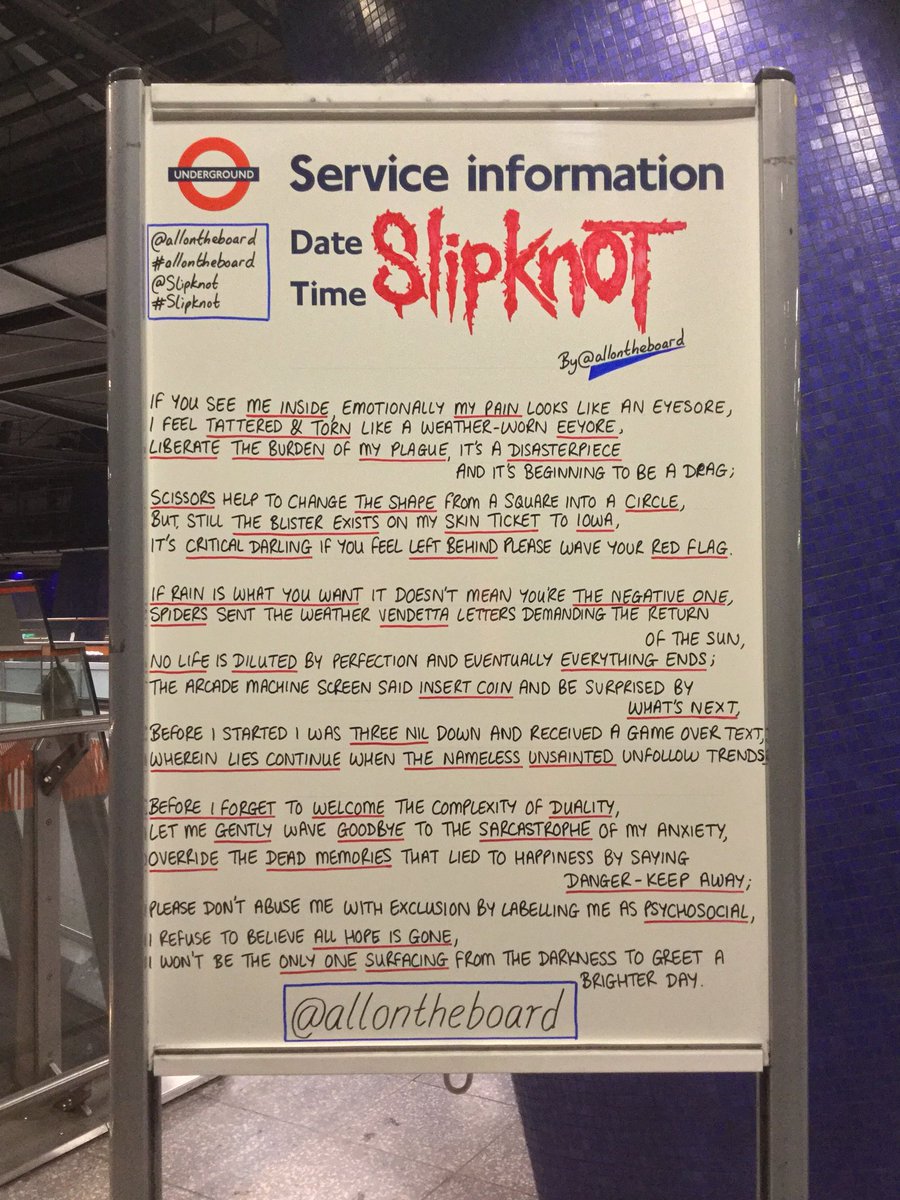 UNDERGROUND
Service information
@allontheboard
#allontheboard
@Slipknot
#Slipknot
Date
Time
SlipknoT
By@allontheboard
IF YOU SEE ME INSIDE, EMOTIONALLY MY PAIN LOOKS LIKE AN EYESORE,
I FEEL TATTERED & TORN LIKE A WEATHER-WORN EEYORE,
LIBERATE THE BURDEN OF MY PLAGUE, IT'S A DISASTERPIECE
AND IT'S BEGINNING TO BE A DRAG;
SCISSORS HELP TO CHANGE THE SHAPE FROM A SQUARE INTO A CIRCLE,
BUT, STILL THE BLISTER EXISTS ON MY SKIN TICKET TO IOWA,
IT'S CRITICAL DARLING IF YOU FEEL LEFT BEHIND PLEASE WAVE YOUR RED FLAG.
IF RAIN IS WHAT YOU WANT IT DOESN'T MEAN YOU'RE THE NEGATIVE ONE,
SPIDERS SENT THE WEATHER VENDETTA LETTERS DEMANDING THE RETURN
OF THE SUN,
NO LIFE IS DILUTED BY PERFECTION AND EVENTUALLY EVERYTHING ENDS;
THE ARCADE MACHINE SCREEN SAID INSERT COIN AND BE SURPRISED BY
WHAT'S NEXT,
BEFORE I STARTED I WAS THREE NIL DOWN AND RECEIVED A GAME OVER TEXT,
WHEREIN LIES CONTINUE WHEN THE NAMELESS UNSAINTED UNFOLLOW TRENDS
BEFORE I FORGET TO WELCOME THE COMPLEXITY OF DUALITY,
LET ME GENTLY WAVE GOODBYE TO THE SARCASTROPHE OF MY ANXIETY,
OVERRIDE THE DEAD MEMORIES THAT LIED TO HAPPINESS BY SAYING
DANGER-KEEP AWAY;
PLEASE DON'T ABUSE ME WITH EXCLUSION BY LABELLING ME AS PSYCHOSOCIAL,
I REFUSE TO BELIEVE ALL HOPE IS GONE,
I WON'T BE THE ONLY ONE SURFACING FROM THE DARKNESS TO GREET A
BRIGHTER DAY.
@allontheboard